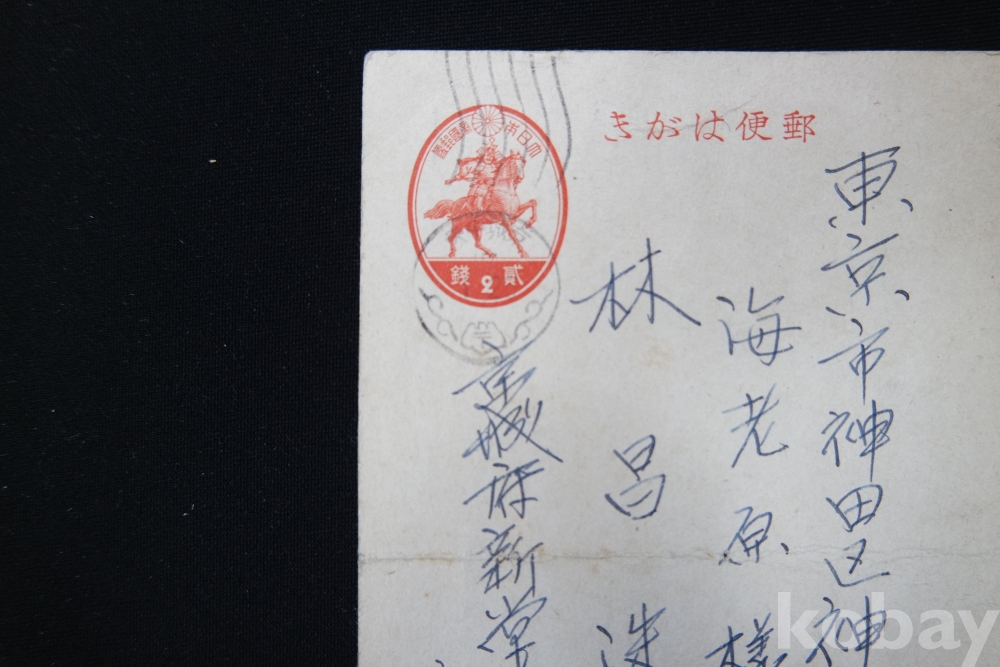 郵便はがき
大日本帝國郵便
貳 2 錢
東京市神田区神
海老原様
林昌洙
京城府新堂
kobay